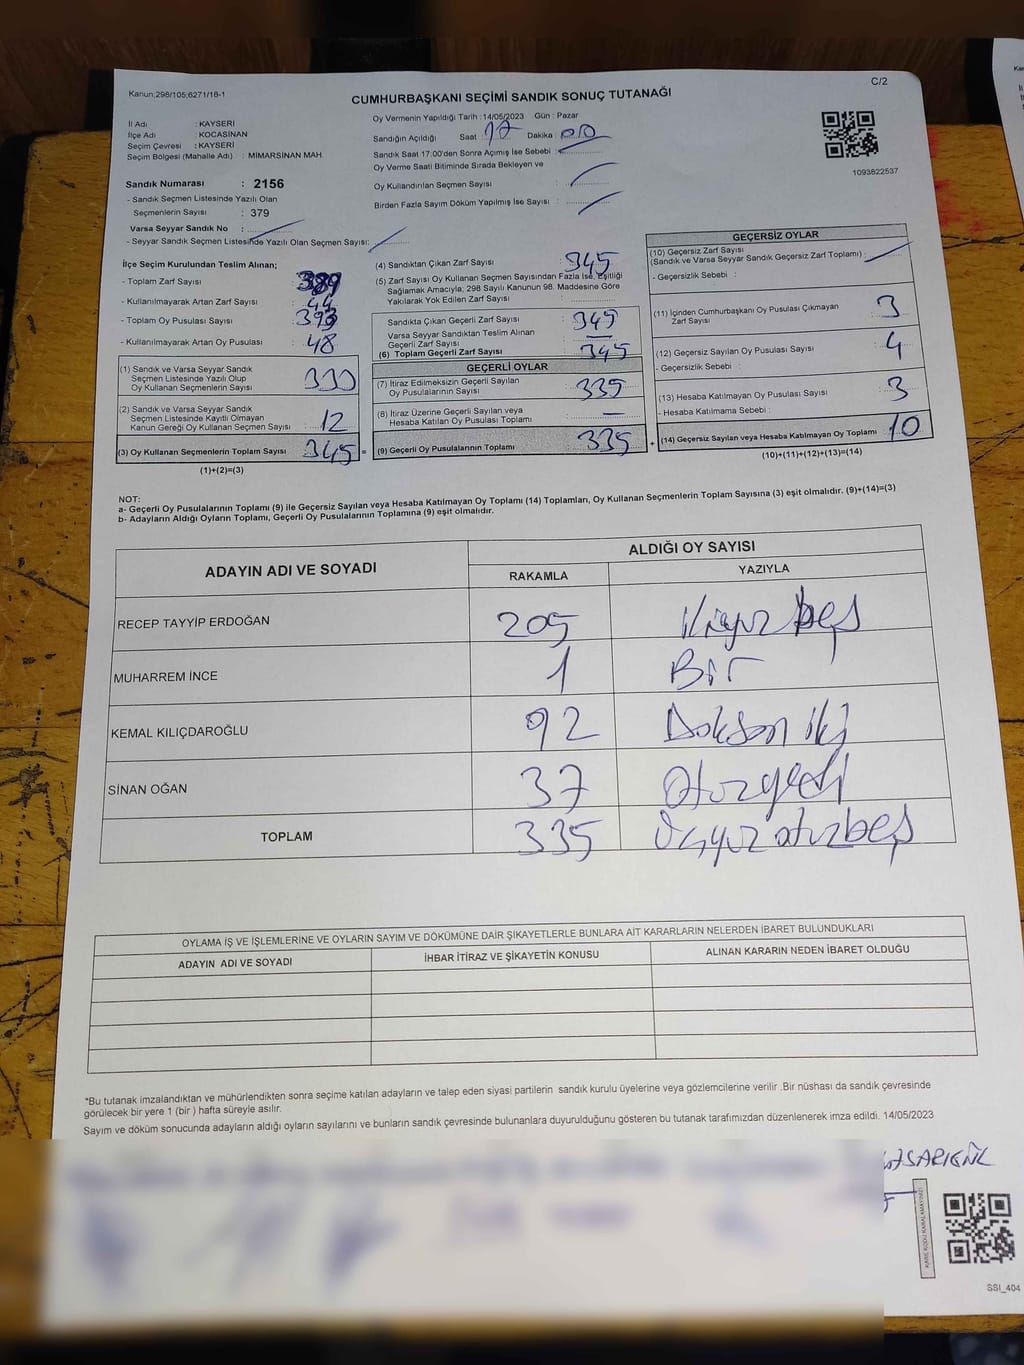 C/2
Kanun;298/105;6271/18-1
CUMHURBAŞKANI SEÇİMİ SANDIK SONUÇ TUTANAĞI
İl Adı : KAYSERİ
İlçe Adı : KOCASİNAN
Seçim Çevresi : KAYSERİ
Seçim Bölgesi (Mahalle Adı) : MİMARSİNAN MAH.
Sandık Numarası : 2156
- Sandık Seçmen Listesinde Yazılı Olan
Seçmenlerin Sayısı : 379
Varsa Seyyar Sandık No :
- Seyyar Sandık Seçmen Listesinde Yazılı Olan Seçmen Sayısı:
Oy Vermenin Yapıldığı Tarih : 14/05/2023 Gün : Pazar
Sandığın Açıldığı Saat 17 Dakika : 00
Sandık Saat 17:00'den Sonra Açımış İse Sebebi :
Oy Verme Saati Bitiminde Sırada Bekleyen ve
Oy Kullandırılan Seçmen Sayısı :
Birden Fazla Sayım Döküm Yapılmış İse Sayısı :
1093822537
İlçe Seçim Kurulundan Teslim Alınan;
- Toplam Zarf Sayısı : 389
- Kullanılmayarak Artan Zarf Sayısı : 44
- Toplam Oy Pusulası Sayısı : 393
- Kullanılmayarak Artan Oy Pusulası : 48
(1) Sandık ve Varsa Seyyar Sandık
Seçmen Listesinde Yazılı Olup
Oy Kullanan Seçmenlerin Sayısı : 333
(2) Sandık ve Varsa Seyyar Sandık
Seçmen Listesinde Kayıtlı Olmayan
Kanun Gereği Oy Kullanan Seçmen Sayısı : 12
(3) Oy Kullanan Seçmenlerin Toplam Sayısı : 345 =
(1)+(2)=(3)
(4) Sandıktan Çıkan Zarf Sayısı : 345
(5) Zarf Sayısı Oy Kullanan Seçmen Sayısından Fazla İse, Eşitliği
Sağlamak Amacıyla; 298 Sayılı Kanunun 98. Maddesine Göre
Yakılarak Yok Edilen Zarf Sayısı :
Sandıkta Çıkan Geçerli Zarf Sayısı : 345
Varsa Seyyar Sandıktan Teslim Alınan
Geçerli Zarf Sayısı : —
(6) Toplam Geçerli Zarf Sayısı : 345
GEÇERLİ OYLAR
(7) İtiraz Edilmeksizin Geçerli Sayılan
Oy Pusulası Sayısı : 335
(8) İtiraz Üzerine Geçerli Sayılan veya
Hesaba Katılan Oy Pusulası Toplamı : —
(9) Geçerli Oy Pusulalarının Toplamı : 335 +
GEÇERSİZ OYLAR
(10) Geçersiz Zarf Sayısı
(Sandık ve Varsa Seyyar Sandık Geçersiz Zarf Toplamı) :
- Geçersizlik Sebebi :
(11) İçinden Cumhurbaşkanı Oy Pusulası Çıkmayan
Zarf Sayısı : 3
(12) Geçersiz Sayılan Oy Pusulası Sayısı : 4
- Geçersizlik Sebebi :
(13) Hesaba Katılmayan Oy Pusulası Sayısı : 3
- Hesaba Katılmama Sebebi :
(14) Geçersiz Sayılan veya Hesaba Katılmayan Oy Toplamı : 10
(10)+(11)+(12)+(13)=(14)
NOT:
a- Geçerli Oy Pusulalarının Toplamı (9) ile Geçersiz Sayılan veya Hesaba Katılmayan Oy Toplamı (14) Toplamları, Oy Kullanan Seçmenlerin Toplam Sayısına (3) eşit olmalıdır. (9)+(14)=(3)
b- Adayların Aldığı Oyların Toplamı, Geçerli Oy Pusulalarının Toplamına (9) eşit olmalıdır.
ADAYIN ADI VE SOYADI ALDIĞI OY SAYISI
RAKAMLA YAZIYLA
RECEP TAYYİP ERDOĞAN 205 ikiyüz beş
MUHARREM İNCE 1 Bir
KEMAL KILIÇDAROĞLU 92 Doksan iki
SİNAN OĞAN 37 Otuzyedi
TOPLAM 335 Üçyüz otuzbeş
OYLAMA İŞ VE İŞLEMLERİNE VE OYLARIN SAYIM VE DÖKÜMÜNE DAİR ŞİKAYETLERLE BUNLARA AİT KARARLARIN NELERDEN İBARET BULUNDUKLARI
ADAYIN ADI VE SOYADI İHBAR İTİRAZ VE ŞİKAYETİN KONUSU ALINAN KARARIN NEDEN İBARET OLDUĞU
*Bu tutanak imzalandıktan ve mühürlendikten sonra seçime katılan adayların ve talep eden siyasi partilerin sandık kurulu üyelerine veya gözlemcilerine verilir .Bir nüshası da sandık çevresinde
görülecek bir yere 1 (bir ) hafta süreyle asılır.
Sayım ve döküm sonucunda adayların aldığı oyların sayılarını ve bunların sandık çevresinde bulunanlara duyurulduğunu gösteren bu tutanak tarafımızdan düzenlenerek imza edildi. 14/05/2023
KARE KODU KARALAMAYINIZ!
SSI_404